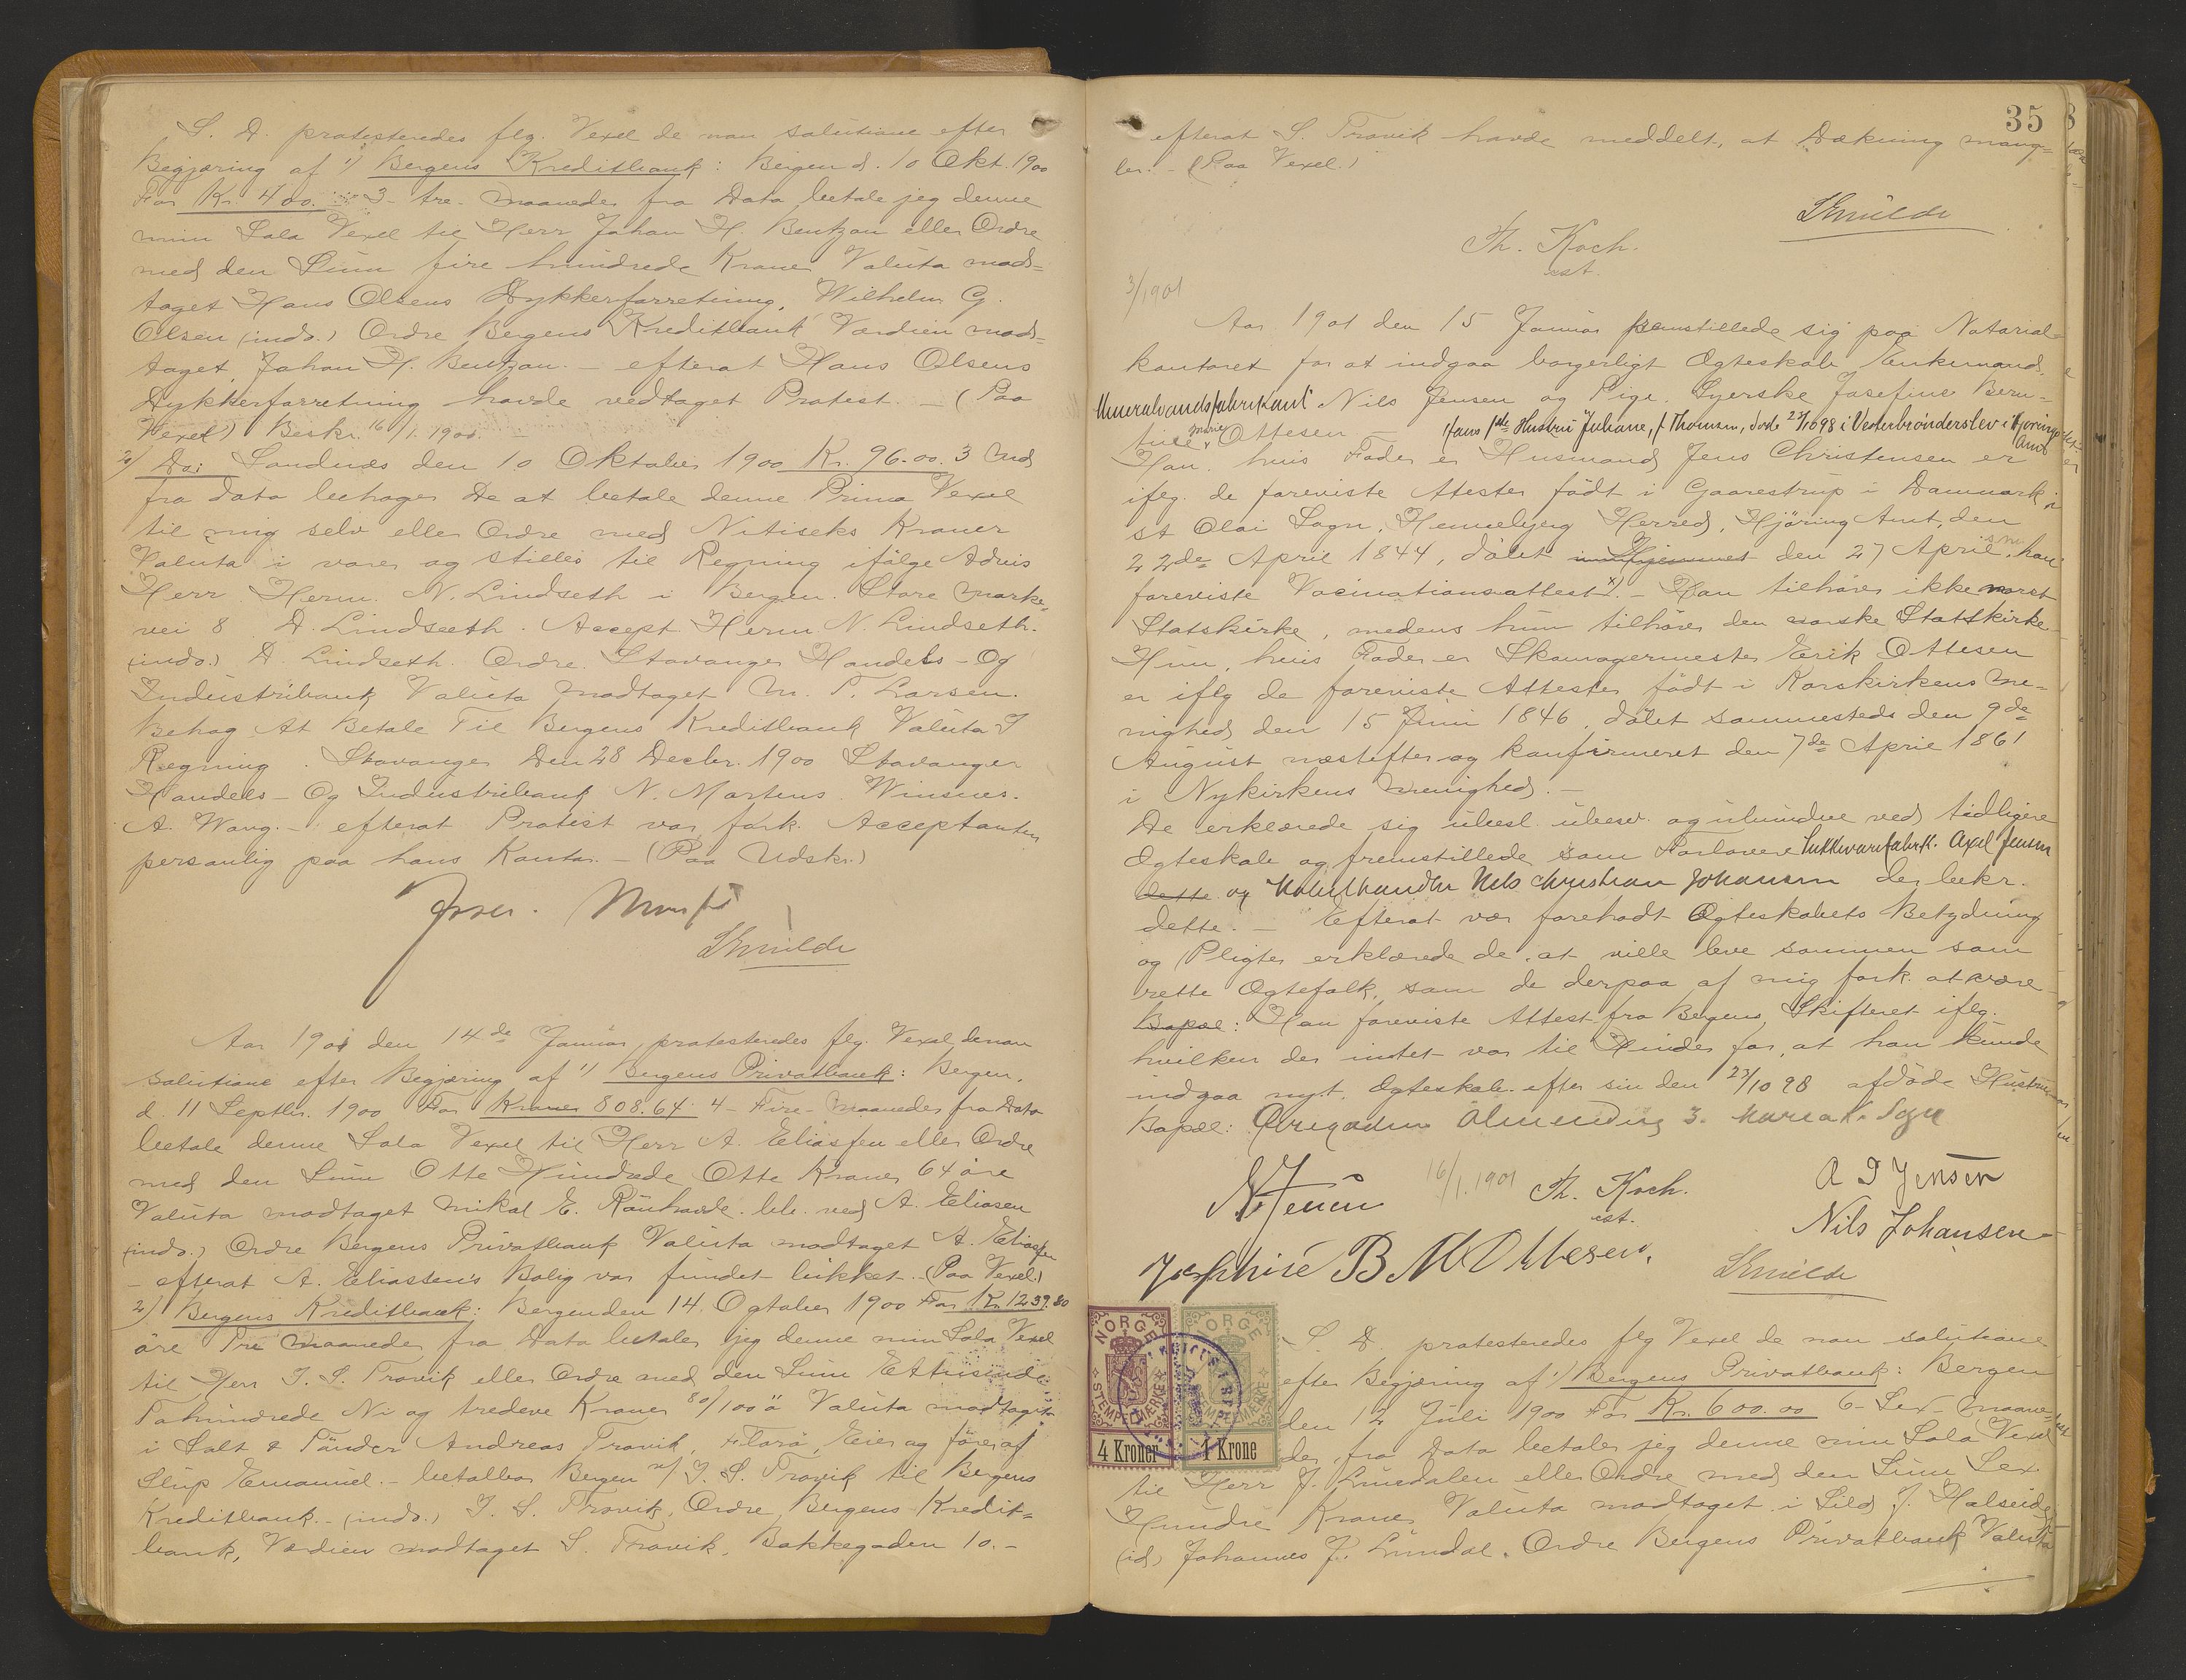 S. D. protesteredes flg. Vexel de non solutione efter
Begjæring af 1) Bergens Kreditbank: Bergen d. 10 Okt. 1900
For Kr. 400. 3 - tre - maaneder fra Data betale jeg denne
min Sola Vexel til Herr Johan H. Bentzon eller Ordre
med den Sum fire hundrede Kroner Valuta mod=
taget Hans Olsens Dykkerforretning, Wilhelm G.
Olsen (indo.) Ordre Bergens Kreditbank Værdien mod=
taget Johan H. Bentzon. - efterat Hans Olsens
Dykkerforretning havde vedtaget Protest. - (Paa
Vexel) Beskr. 16/1. 1900.
2) Do: Sandnæs den 10 Oktober 1900 Kr. 96.00. 3 Md
fra dato behager De at betale denne Prima Vexel
til mig selv eller Ordre med Nitiseks Kroner
Valuta i varer og stilles til Regning ifølge Advis
Herr Herm. N. Lindseth i Bergen. Store Marke=
vei 8 D. Lindseth. Accept Herm N. Lindseth.
(indo.) D Lindseth. Ordre Stavanger Handels - Og
Industribank Valuta Modtaget M. T. Larsen.
Behag At Betale Til Bergens Kreditbank Valuta I
Regning. Stavanger Den 28 Decbr. 1900 Stavanger
Handels - Og Industribank N. Martens Winsnes.
A. Wang. - efterat Protest var fork. Acceptanten
personlig paa hans Kontor. - (Paa Udskr.)
Smilde
Aar 1901 den 14de Januar protesteredes flg. Vexel de non
solutione efter Begjæring af 1) Bergens Privatbank: Bergen,
d. 11 Septbr. 1900 For Kroner 808.64. 4 - Fire - Maaneder fra Dato
betale denne Sola Vexel til Herr A. Eliassen eller Ordre
med den Sum Otte Hundrede Otte Kroner 64 øre
Valuta modtaget Mikal E. Rønhovde. btl. ved A. Eliasen
(indo.) Ordre Bergens Privatbank Valuta modtaget A. Eliassen
- efterat A. Eliassen's Bolig var fundet lukket. - (Paa Vexel)
2) Bergens Kreditbank: Bergen den 14. Ogtober 1900 For Kr. 1239.80
øre Tre Maaneder fra Data betaler jeg denne min Sola Vexel
til Herr I. S. Trovik eller Ordre med den Sum Ettusinde
Tohundrede Ni og tredeve Kroner 80/100 ø Valuta modtaget
i Salt & Tønder Andreas Trovik, Florø, Eier og fører af
Slup Emanuel. - betalbar Bergen v/ I. S. Trovik til Bergens
Kreditbank. - (indo.) I. S. Trovik, Ordre Bergens Kredit=
bank, Værdien modtaget S. Trovik, Bakkegaden 10. -
35
efterat S. Trovik havde meddelt, at Dækning mang=
ler. - (Paa Vexel.)
Smilde
Th. Koch.
cst.
3/1901
Aar 1901 den 15 Januar fremstillede sig paa Notarial=
kontoret for at indgaa borgerligt Ægteskab Enkemand,
Mineralvandsfabrikant Nils Jensen og Pige, Syerske Josefine Bern=
tine Marie Ottesen - Hans 1ste Hustru Juliane, f. Thomsen, døde 23/10 98 i Vesterbrønderslev i Hjøring Amt
Han, hvis Fader er Husmand Jens Christensen er
iflg. de foreviste Attester født i Gaarestrup i Danmark i
st Olai Sogn, Hennebjerg Herred, Hjøring Amt, den
22de April 1844, døbt i Hjemmet den 27 April s m. han
foreviste Vaccinationsattest x). - Han tilhører ikke norsk
Statskirke, medens hun tilhører den norske Statskirke
Hun, hvis Fader er Skomagermester Erik Ottesen
er iflg de foreviste Attester født i Korskirkens Me=
nighed den 15 Juni 1846, døbt sammesteds den 9de
August næstefter og konfirmeret den 7de April 1861
i Nykirkens Menighed. -
De erklærede sig ubesl. ubesv. og uhindre ved tidligere
Ægteskab og fremstillede som Forlovere Sukkervarefabrk. Axel Jensen
dette og Nils Christian Johansen der bekr.
dette. - Efterat var foreholdt Ægteskabets Betydning
og Pligter erklærede de, at ville leve sammen som
rette Ægtefolk, som de derpaa af mig fork. at være
Bopæl: Han foreviste Attest fra Bergens Skifteret iflg.
hvilken der intet var til Hinder for, at han kunde
indgaa nyt Ægteskab efter sin den 23/10 98 afdøde Hustru
Bopæl: Øvregadens Almending 3. Maria K. Sogn
N Jensen
16/1. 1901
Th. Koch.
cst.
A I Jensen
Nils Johansen
Josephine B M Ottesen.
Smilde
NORGE
STEMPELMÆRKE
4 Kroner
NORGE
STEMPELMÆRKE
1 Krone
S. D. protesteredes flg Vexel de non solutione
efter Begjæring af 1) Bergens Privatbank: Bergen
den 12 Juli 1900 For Kr. 600.00 6 - Sex - Maane=
der fra Dato betaler jeg denne min Sola Vexel
til Herr J. Lundalen eller Ordre med den Sum Sex
Hundre Kroner Valuta modtaget i Sild J. Halseide
(id) Johannes J. Lundal. Ordre Bergens Privatbank Valuta